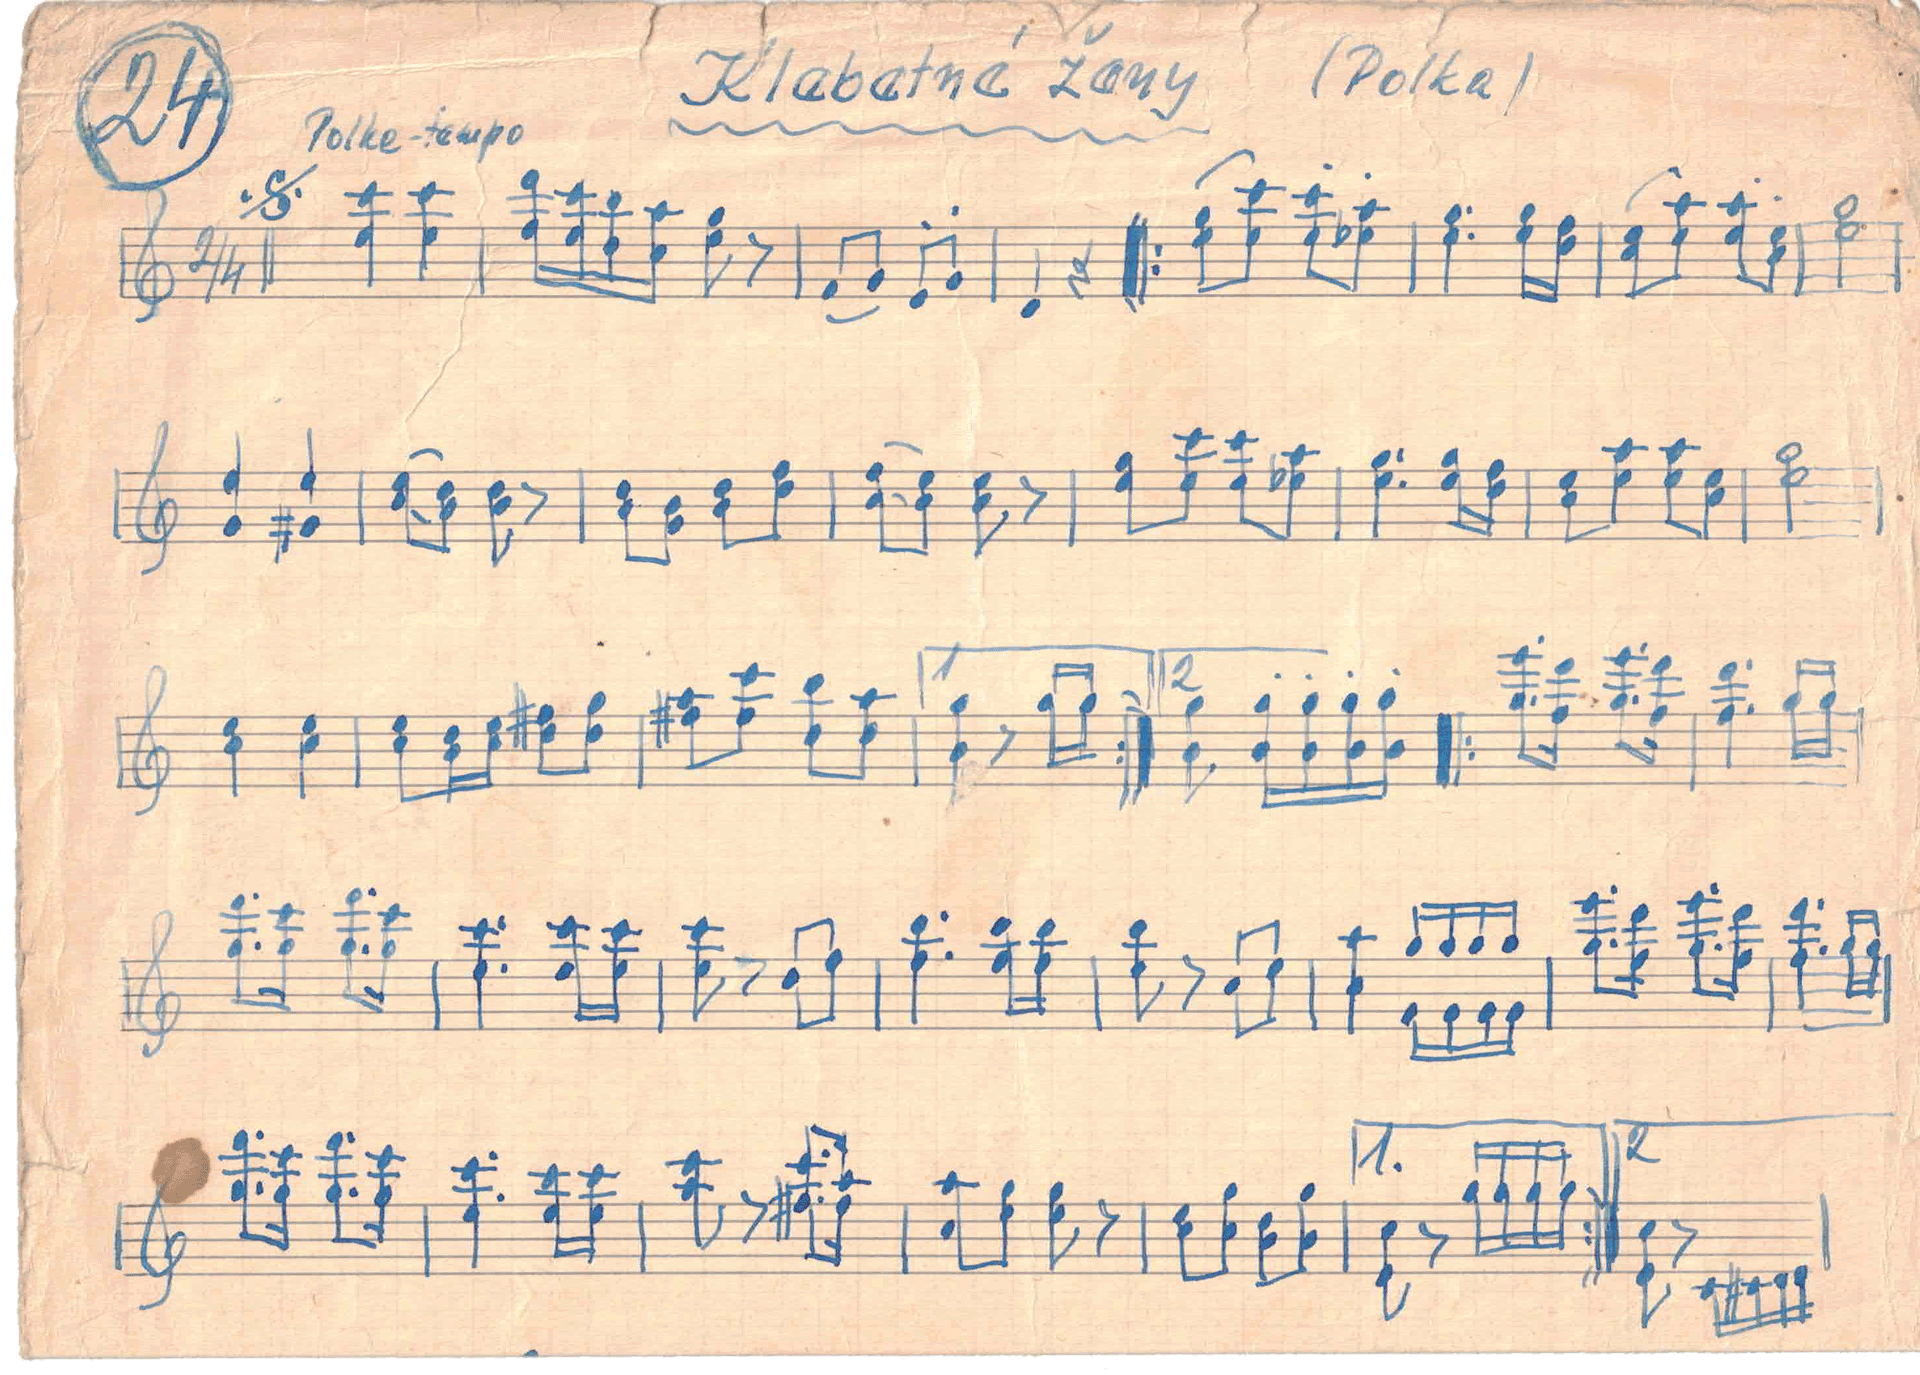 24
Klebetné ženy (Polka)
Polka-tempo
2/4
1 2
1. 2